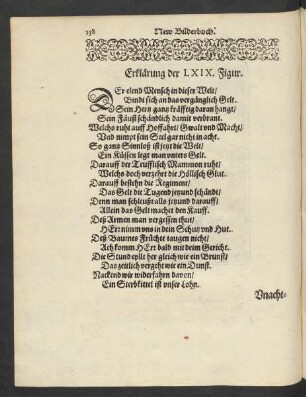 138 New Bilderbuch.
Erklärung der LXIX. Figur.
DEr elend Mensch in dieser Welt/
Bindt sich an das vergänglich Gelt.
Sein Hertz gantz kräfftig daran hangt/
Sein Fäust schändlich damit verbrant.
Welchs ruht auff Hoffahrt/ Gwalt vnd Macht/
Vnd nimpt sein Seel gar nicht in acht.
So gantz Sinnloß ist jetzt die Welt/
Ein Küssen legt man vnters Gelt.
Darauff der Teufflisch Mammon ruht/
Welchs doch verzehrt die Höllisch Glut.
Darauff bestehn die Regiment/
Das Gelt die Tugend jetzund schändt/
Denn man schleußt alls jetzund darauff/
Allein das Gelt machet den Kauff.
Deß Armen man vergessen thut/
HErr nimm vns in dein Schutz vnd Hut.
Deß Baumes Früchte taugen nicht/
Ach komm HErr bald mit deim Gericht.
Die Stund eyllt her gleich wie ein Brunst/
Das zeitlich vergeht wie ein Dunst.
Nackend wir widerfahrn davon/
Ein Sterbkittel ist vnser Lohn.
Vnacht-